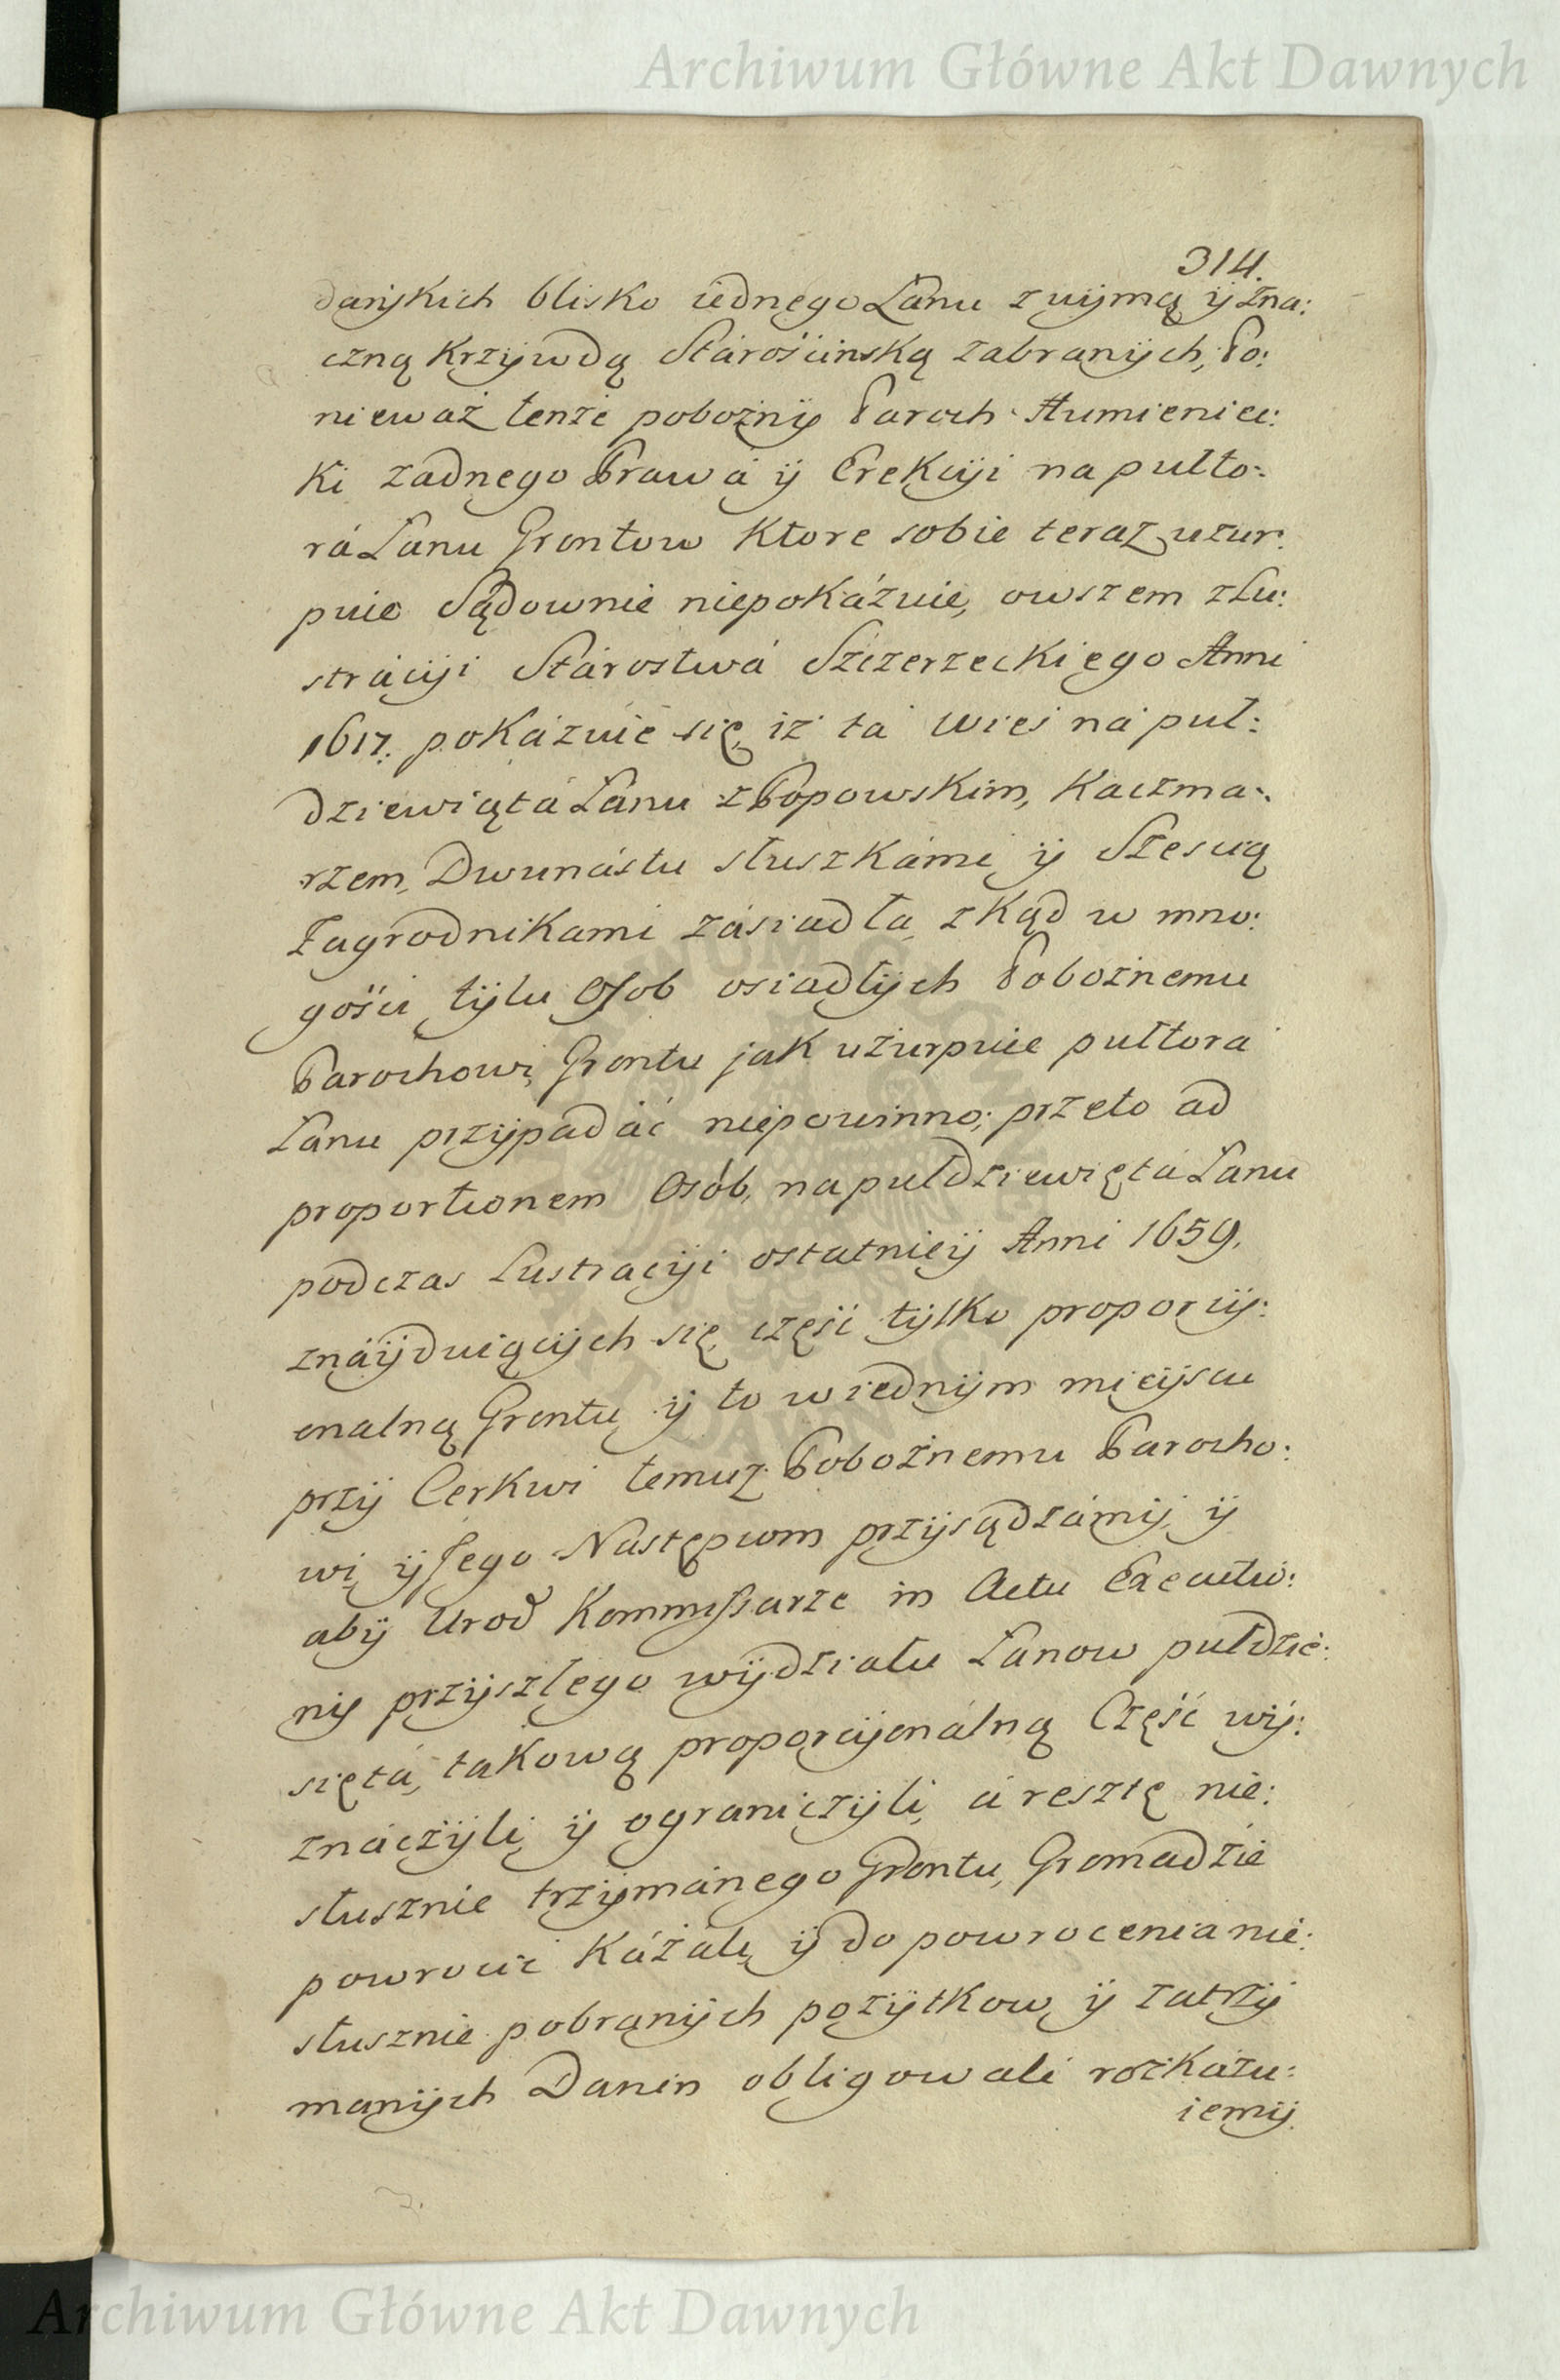 Archiwum Główne Akt Dawnych
314.
dańskich blisko iednego Łanu z uymą ÿ zna:
czną Krzÿwdą Stárośćinską zabranÿch, Po:
nieważ tenże pobożnÿ Paroch Humieniec:
ki zadnego Prawá ÿ Erekcÿi na pułto:
rá Łanu Grontow Ktore sobie teraz uzur:
puie Sądownie niepokázuie, owszem z Lu:
strácÿi Stárostwá Szczerzeckiego Anni
1617. pokázuie się, iż ta wieś ná puł:
dziewiątá Łanu z Popowskim, Kaczma:
rzem, Dwunástu słuszkámi ÿ Sześcią
Zagrodnikami zásiadła, zkąd w mno:
gości tÿlu Osob osiadłÿch Pobożnemu
Parochowi Grontu jak uzurpuie pułtora
Łanu przÿpadáć niepowinno; przeto ad
proportionem Osób, na pułdziewiętá Łanu
podczas Lustracÿi ostatnieÿ Anni 1659.
znáÿduiącÿch się, część tÿlko proporcÿ:
onalną Grontu ÿ to w iednÿm mieÿscu
przÿ Cerkwi temuż Pobożnemu Parocho:
wi ÿ Jego Następcom przÿsądzámÿ, ÿ
abÿ Urod Kommissarze in Actu Executio:
nis przÿszłego wÿdziału Łanow pułdzie:
sięta, takową proporcÿonálną Część wÿ:
znáczÿli ÿ ograniczÿli, á resztę nie:
słusznie trzÿmánego Grontu, Gromadzie
powrocić Kázáli, ÿ do powrocenia nie:
słusznie pobranÿch pozÿtkow ÿ zatrzÿ
manÿch Danin obligowali rozkázu:
iemÿ.
Archiwum Główne Akt Dawnych